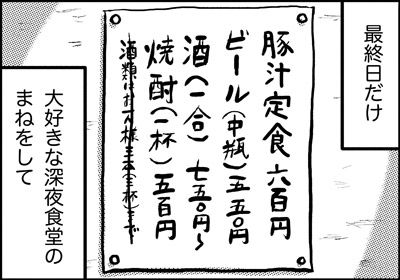 最終日だけ
豚汁定食 六百円
ビール(中瓶)五五〇円
酒(一合)七五〇円〜
焼酎(一杯)五百円
酒類はお一人様三本(三杯)まで
大好きな深夜食堂の
まねをして